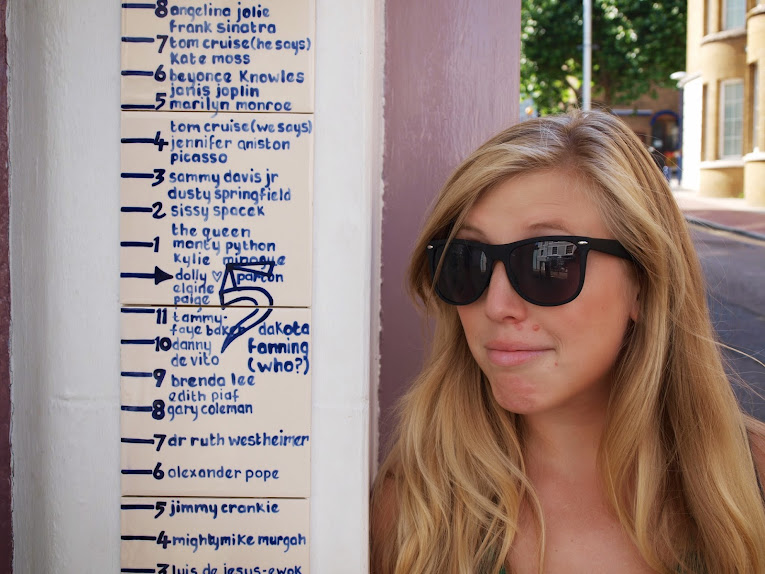 8 angelina jolie
frank sinatra
7 tom cruise (he says)
kate moss
6 beyonce knowles
janis joplin
5 marilyn monroe
tom cruise (we says)
4 jennifer aniston
picasso
3 sammy davis jr
dusty springfield
2 sissy spacek
the queen
1 monty python
kylie minogue
dolly ♡ parton
elaine
paige
5
11 tammy-
faye baker
dakota
fanning
(who?)
10 danny
de vito
9 brenda lee
edith piaf
8 gary coleman
7 dr ruth westheimer
6 alexander pope
5 jimmy crankie
4 mightymike murgah
3 luis de jesus-ewok